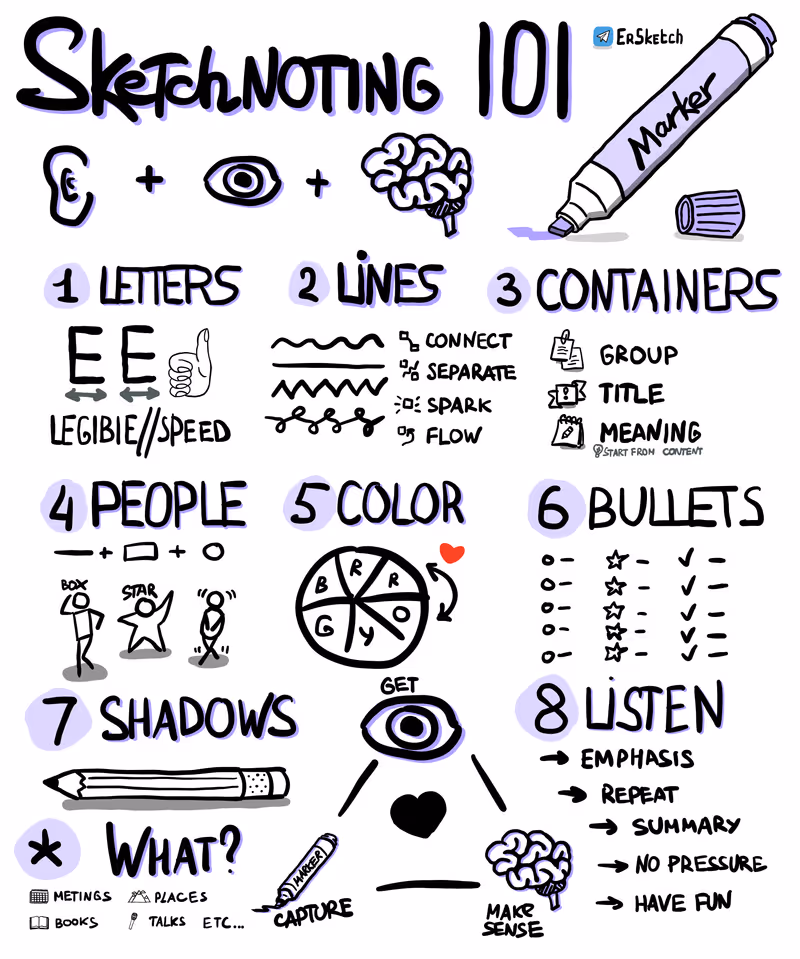 SKETCHNOTING 101
ErSketch
Marker
+ +
1 LETTERS
EE
LEGIBIE//SPEED
2 LINES
CONNECT
SEPARATE
SPARK
FLOW
3 CONTAINERS
GROUP
TITLE
MEANING
START FROM CONTENT
4 PEOPLE
+ +
BOX
STAR
5 COLOR
B R R
G Y O
6 BULLETS
7 SHADOWS
GET
MARKER
CAPTURE
MAKE
SENSE
8 LISTEN
→ EMPHASIS
→ REPEAT
→ SUMMARY
→ NO PRESSURE
→ HAVE FUN
* WHAT?
METINGS PLACES
BOOKS TALKS ETC...